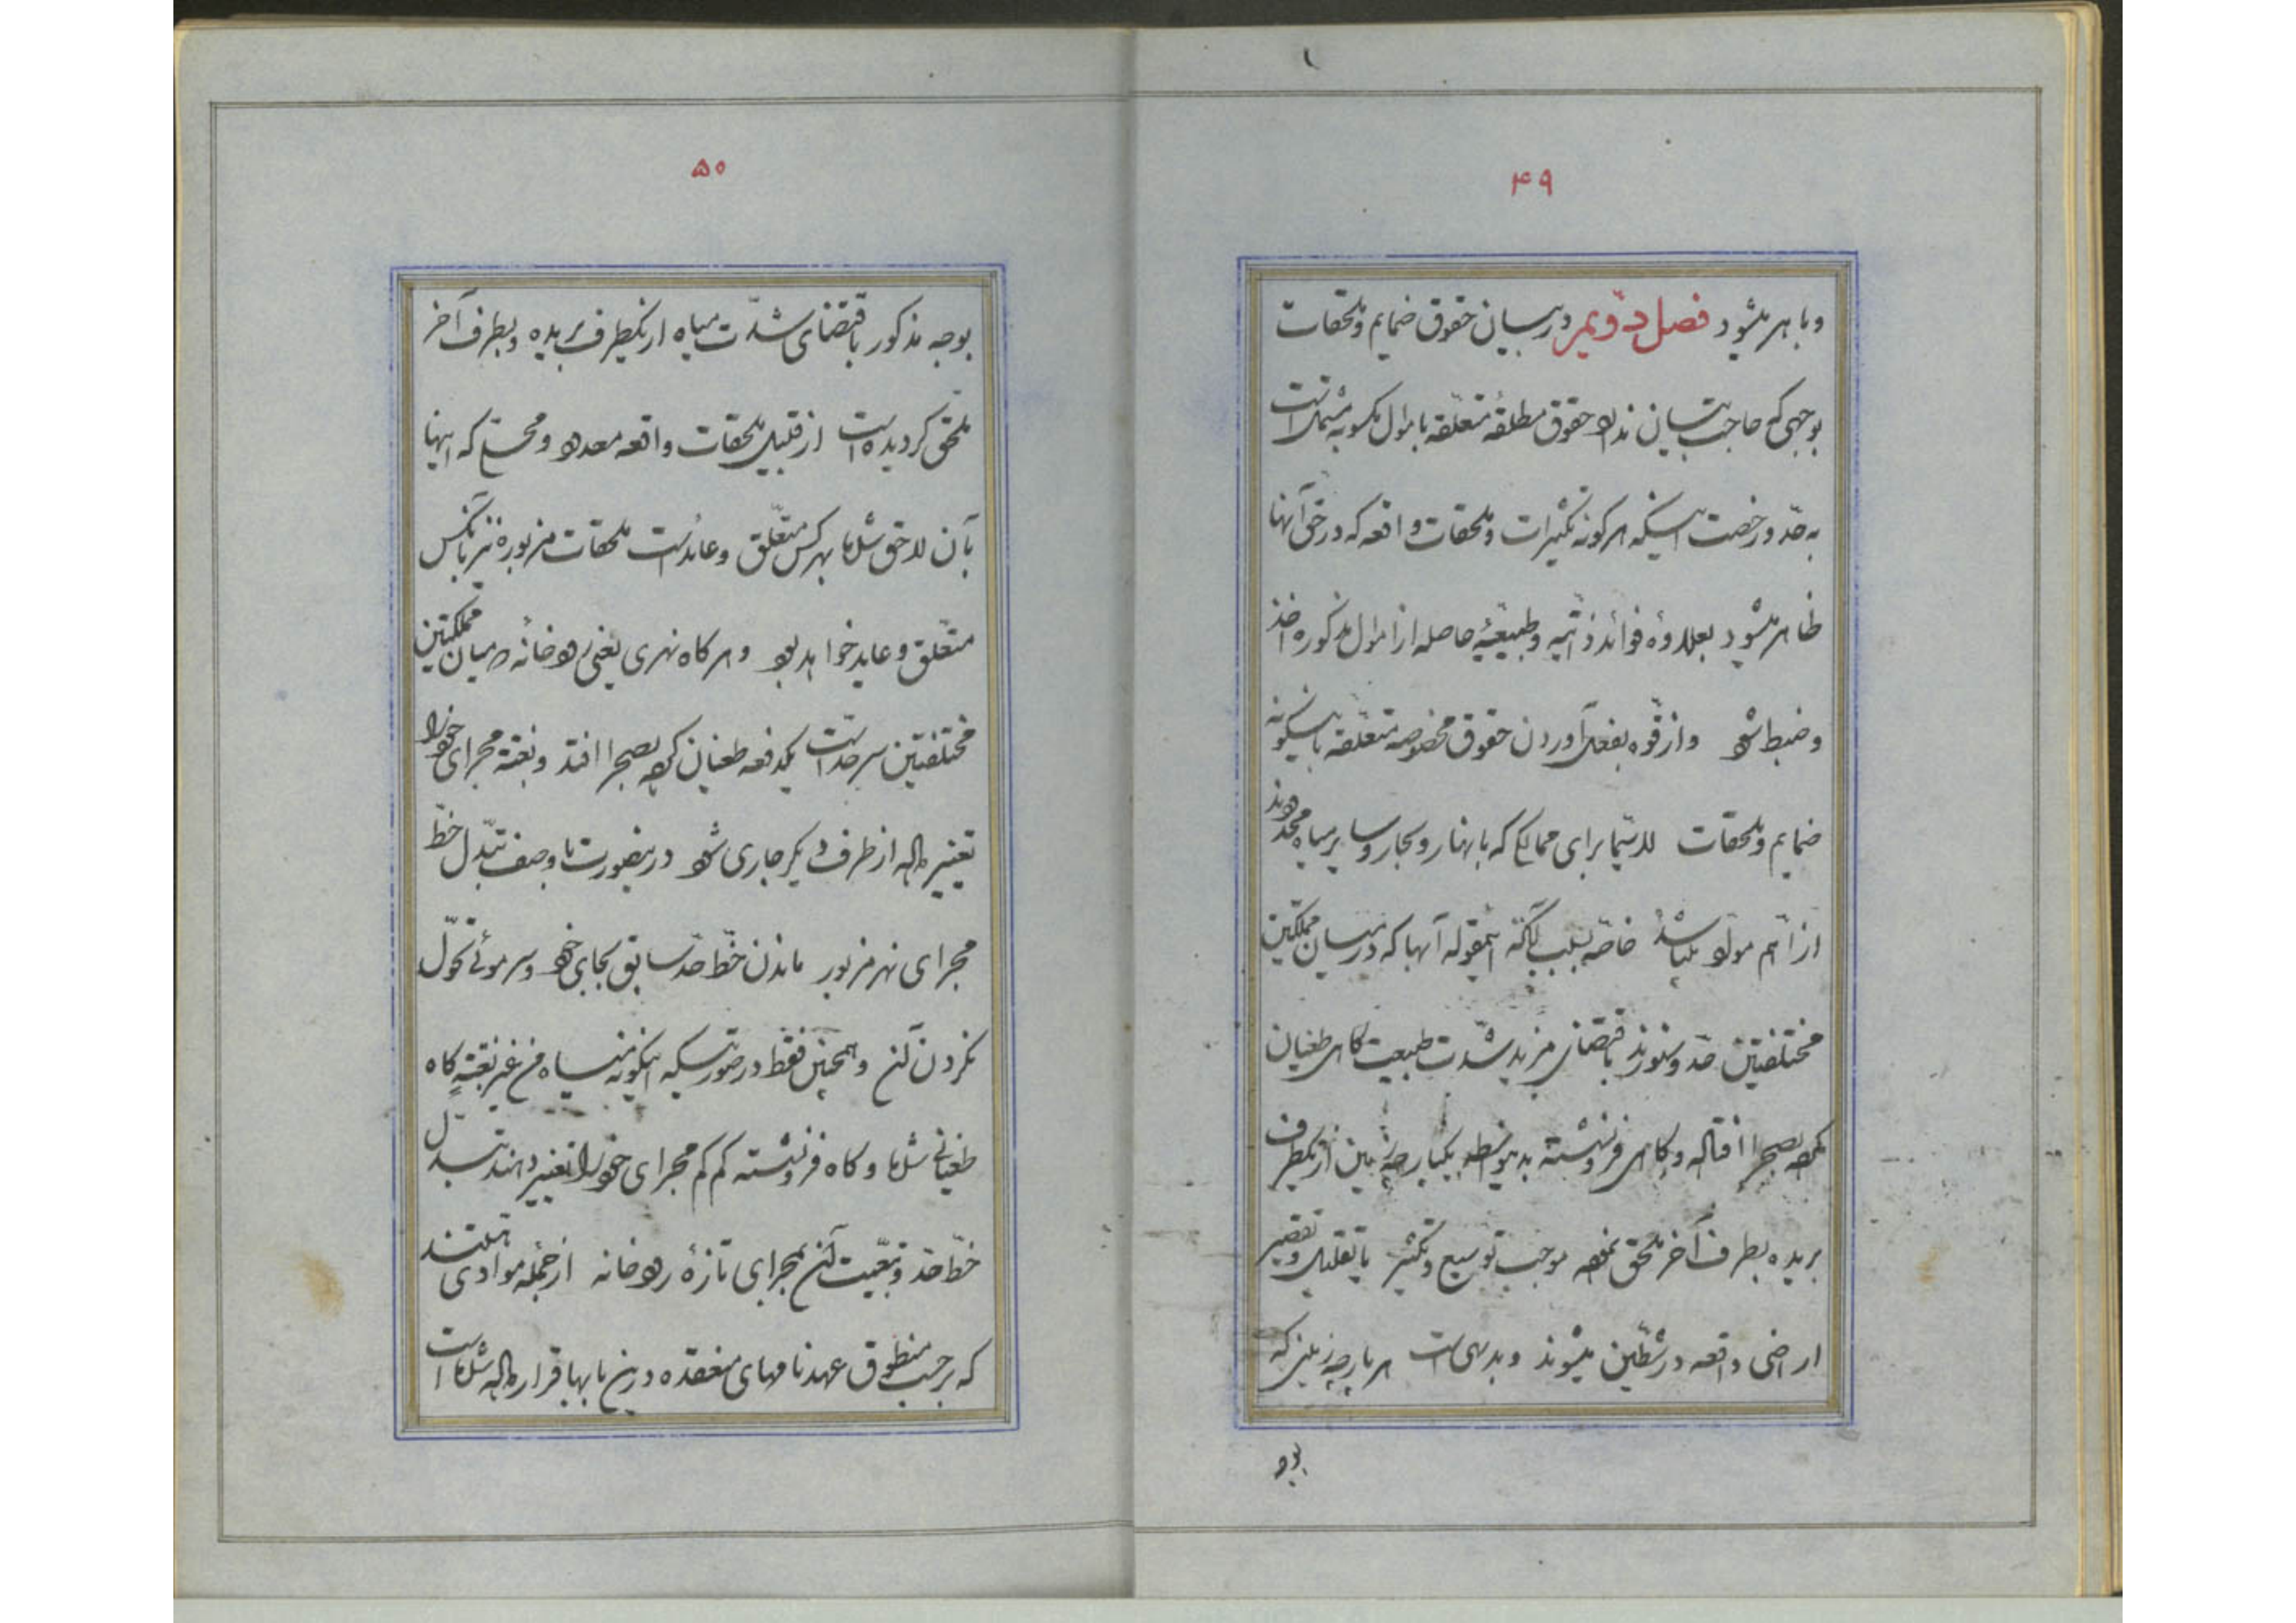 ۴۹
و باهر میشود فصل دویم در بیان حقوق ضمایم و ملحقات
بوجهی که حاجت ببیان ندارد حقوق مطلقهٔ متعلقه باموال مکسوبه مشتمل است
به حد و رخصت اینکه هر گونه تکثیرات و ملحقات واقعه که در حق آنها
ظاهر میشود بعلاوهٔ فوائد ذاتیه و طبیعیهٔ حاصله از اموال مذکوره اخذ
و ضبط شود و از قوه بفعل آوردن حقوق مخصوصه متعلقه باینگونه
ضمایم و ملحقات لاسیما برای ممالکی که بانهار و بحار و سایر میاه محدودند
از اهم مواد میباشد خاصه بسبب آنکه اینمقوله آبها که در میان مملکتین
مختلفتین حد و سنورند باقتضای مزید شدت طبیعت گاهی طغیان
کرده بصحرا افتاده و گاهی فرونشسته بدینواسطه یکپارچه زمین از یکطرف
بریده بطرف آخر ملحق نموده موجب توسیع و تکثیر یا تقلیل و تقصیر
اراضی واقعه در شطین میشوند و بدیهی است هر پارچه زمینی که
بوجه
۵۰
بوجه مذکور باقتضای شدت میاه از یکطرف بریده و بطرف آخر
ملحق گردیده است از قبیل ملحقات واقعه معدود و محلی که اینها
بآن لاحق شده‌اند بهر کس متعلق و عاید است ملحقات مزبوره نیز بآنکس
متعلق و عاید خواهد بود و هر گاه نهری یعنی رودخانه در میان مملکتین
مختلفتین سر حد است یکدفعه طغیان کرده بصحرا افتد و بغتة مجرای خود را
تغییر داده از طرف دیگر جاری شود در اینصورت با وصف تبدل خط
مجرای نهر مزبور ماندن خط حد سابق بجای خود و سر موئی تحول
نکردن آن و همچنین فقط در صورتیکه اینگونه میاه من غیر بغتةٍ گاه
طغیانی شده و گاه فرونشسته کم کم مجرای خود را تغییر دهند تبدل
خط حد و تبعیت آن بمجرای تازهٔ رودخانه از جمله موادی هستند
که بر حسب منطوق عهدنامهای منعقده در این بابها قرار داده شده است